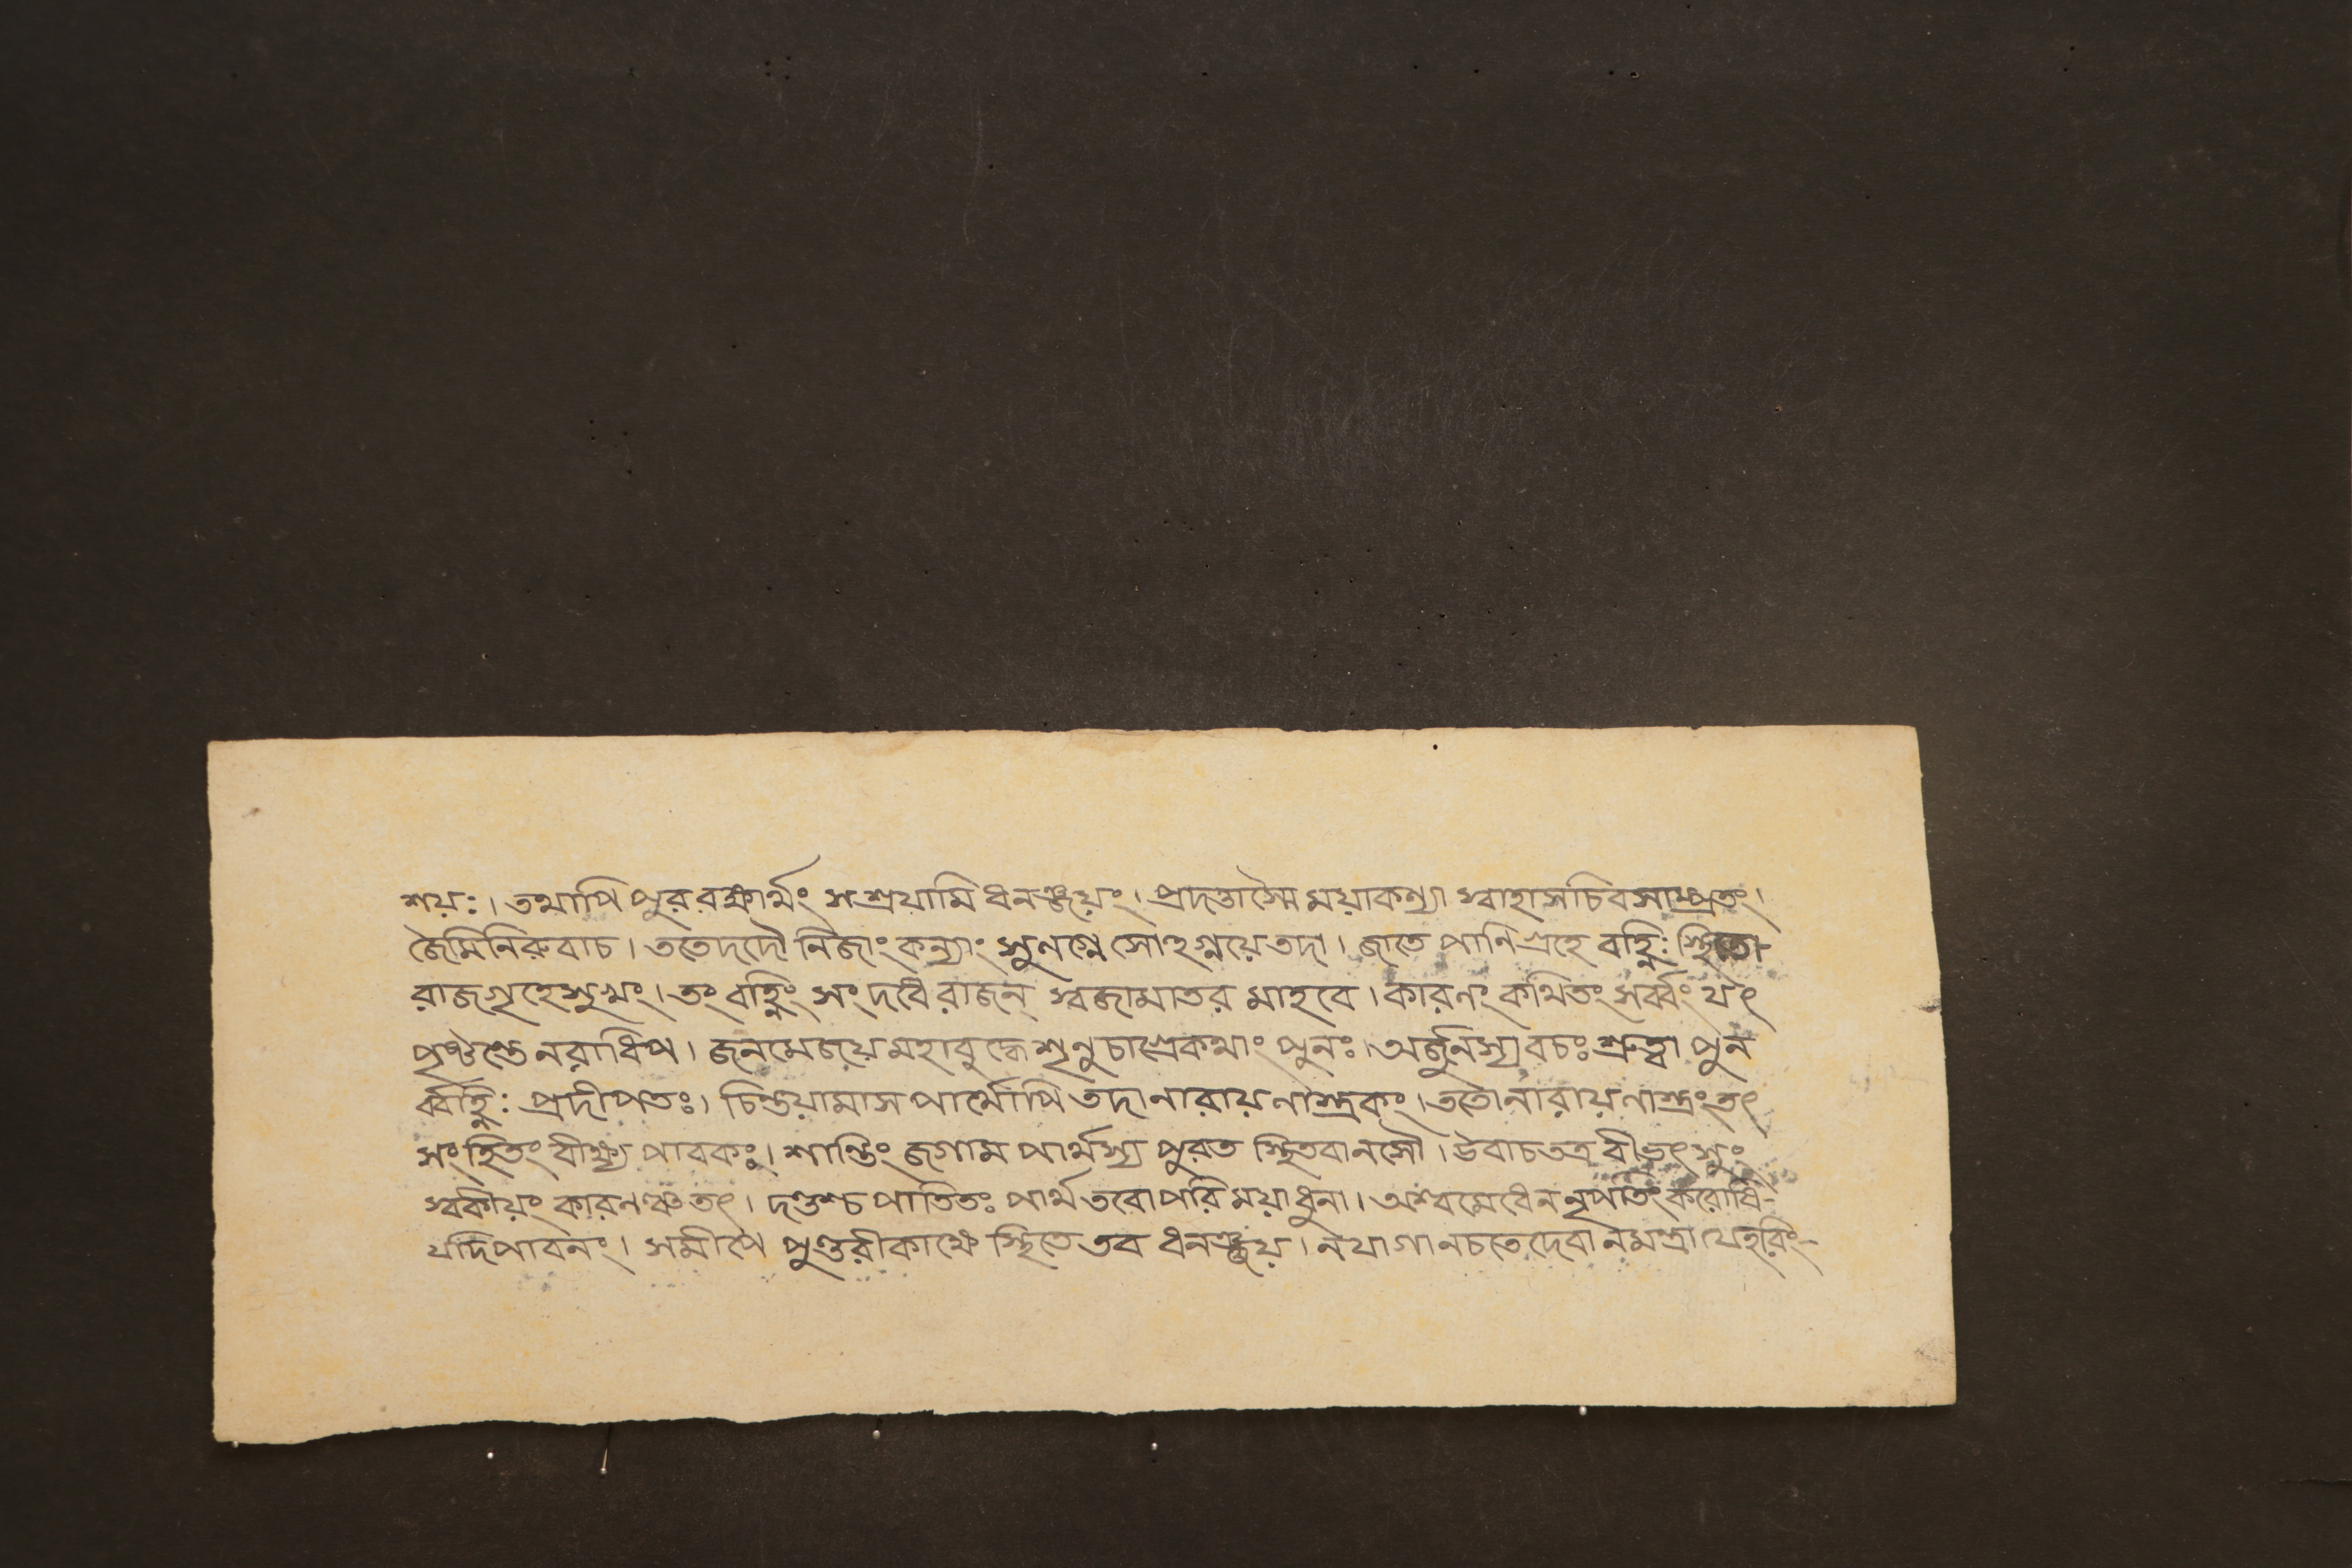 শয়ঃ। তথাপি পুর রক্ষার্থং সশ্রয়ামি ধনঞ্জয়ং। প্রদত্তাস্মৈ ময়াকন্যা স্বাহাসচিবসাম্প্রতং।
জৈমিনিরুবাচ। ততেদদৌ নিজাং কন্যাং সুলগ্নে সোঽগ্নয়ে তদা। জাতে পানিগ্রহে বহ্নিঃ স্থিতো
রাজগৃহেসুখং। তং বহ্নিং সংদধে রাজন্ স্বজামাতর মাহবে। কারণং কথিতং সর্ব্বং যৎ
পৃষ্টং নরাধিপ। জনমেজয়মহাবুদ্ধে শৃনু চাগ্রেকথাং পুনঃ। অর্জুনস্য বচঃ শ্রুত্বা পুন
র্ব্বহ্নিঃ প্রদীপতঃ। চিন্তয়ামাস পার্থোপি তদা নারায়নাস্ত্রকং। ততোনারায়নাস্ত্রং তৎ
সংহিতং বীক্ষ্য পাবকঃ। শান্তিং জগাম পার্থস্য পুরত স্থিতবানসৌ। উবাচ তত্র বীভৎসুং
স্বকীয়ং কারনঞ্চ তৎ। দণ্ডশ্চ পাতিতঃ পার্থ তবোপরি ময়াধুনা। অশ্বমেধেন নৃপতিং করোষি
যদিপাবনং। সমীপে পুণ্ডরীকাক্ষে স্থিতে তব ধনঞ্জয়। নযাগা নচতে দেবা নমন্ত্রা যেহরিং-